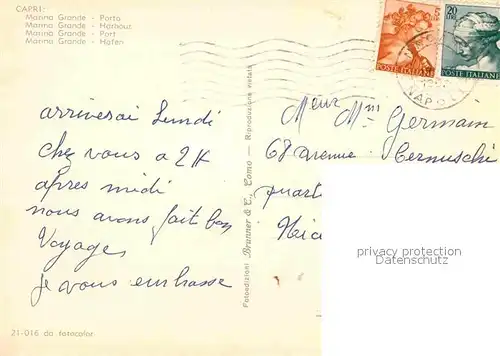 CAPRI:
Marina Grande - Porto
Marina Grande - Harbour
Marina Grande - Port
Marina Grande - Hafen
5 LIRE
POSTE ITALIANE
20 LIRE
POSTE ITALIANE
NAPOLI
arriverai Lundi
chez vous a 2 H
apres midi
nous avons fait bon
Voyage
je vous embrasse
21-016 da fotocolor
Fotoedizioni Brunner & C., Como - Riproduzione vietata
Meur Mm Germain
68 avenue Cernuschi
quart
Nic
privacy protection
Datenschutz